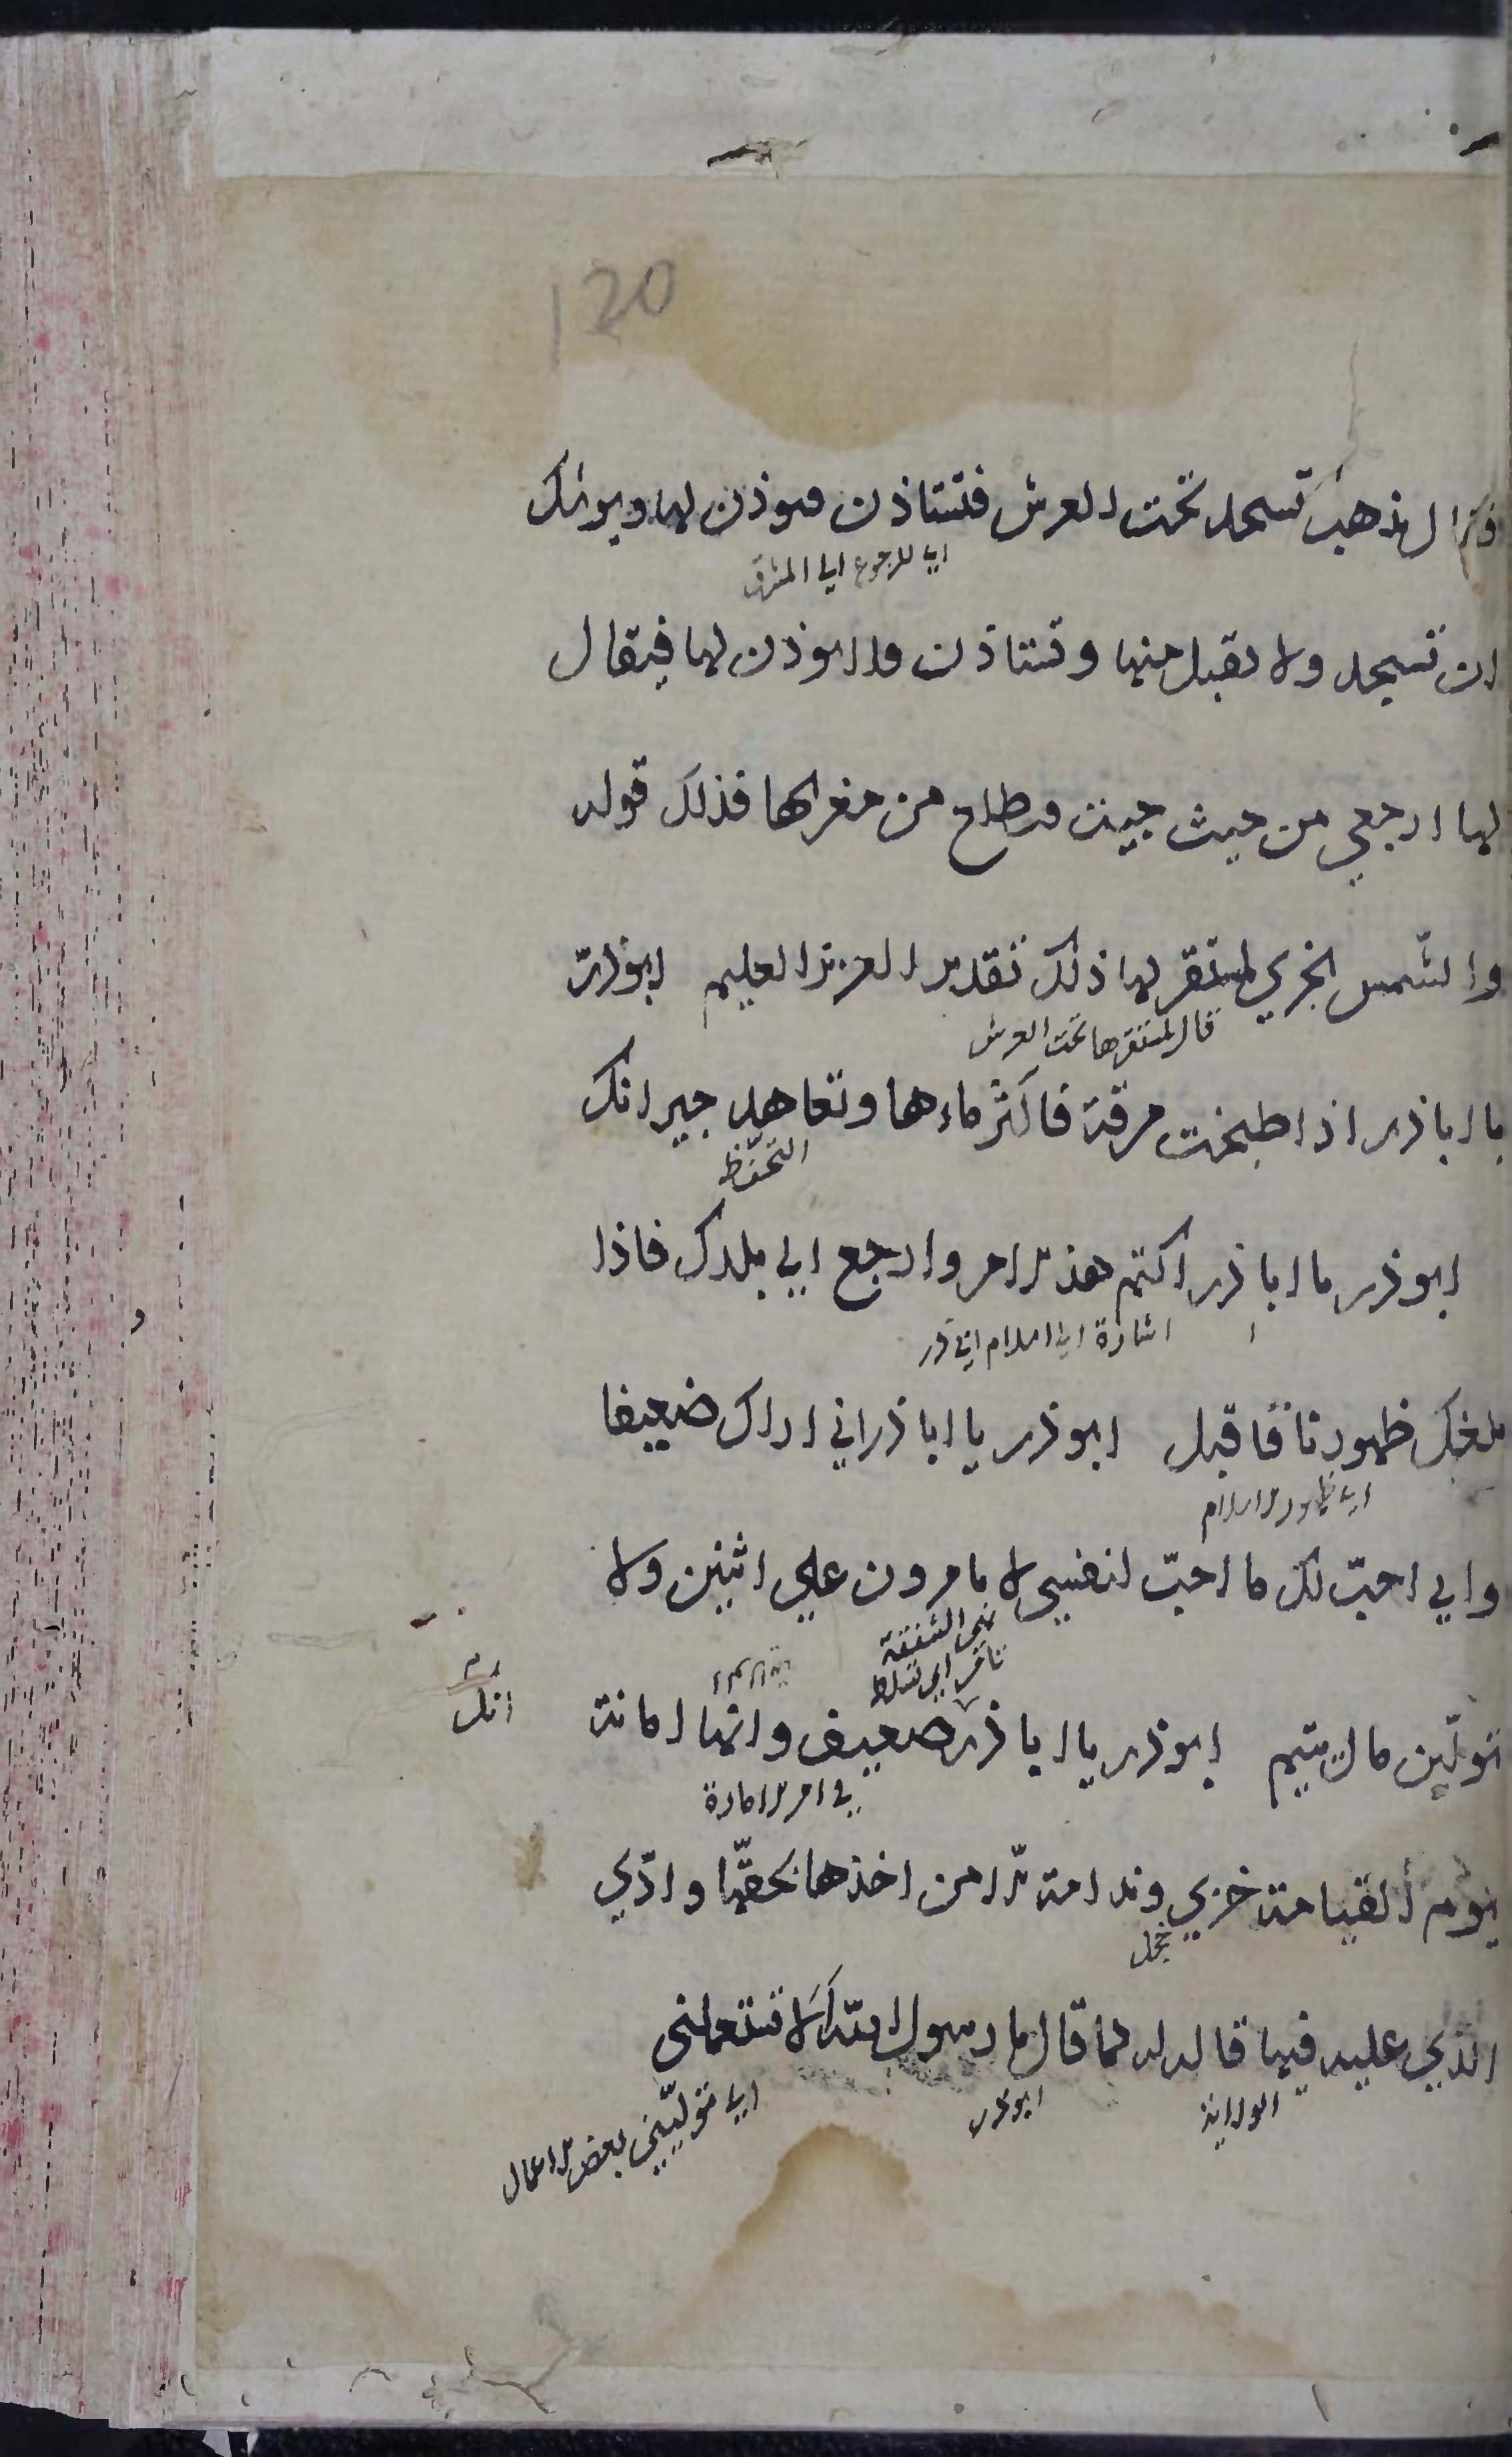 120
تذهب تسجد تحت العرش فتستاذن فيوذن لها ويوشك
اي للرجوع الي المشرق
ان تسجد ولا يقبل منها وتستاذن ولا يوذن لها فيقال
لها ارجعي من حيث جيت فتطلع من مغربها فذلك قوله
والشمس تجري لمستقر لها ذلك تقدير العزيز العليم ابوذر
قال مستقرها تحت العرش
يا اباذر اذا طبخت مرقة فاكثر ماءها وتعاهد جيرانك
التحفظ
ابوذر يا اباذر اكتم هذا الامر وارجع الي بلدك فاذا
اشارة الي اسلام ابي ذر
بلغك ظهورنا فاقبل ابوذر يا اباذر اني اراك ضعيفا
اي ظهور الاسلام
واني احبّ لك ما احبّ لنفسي لا تامرون علي اثنين ولا
نهي الشفقة
تامر اي تسلط
تولّين مال يتيم ابوذر يا اباذر ضعيف وانها امانة
انك
في امر الامارة
يوم القيامة خزي وندامة الّا من اخذها بحقّها وادّي
خجل
الذي عليه فيها قاله له لما قال يا رسول الله الا تستعملني
الولاية
ابوذر
اي تولّيني بعض الاعمال